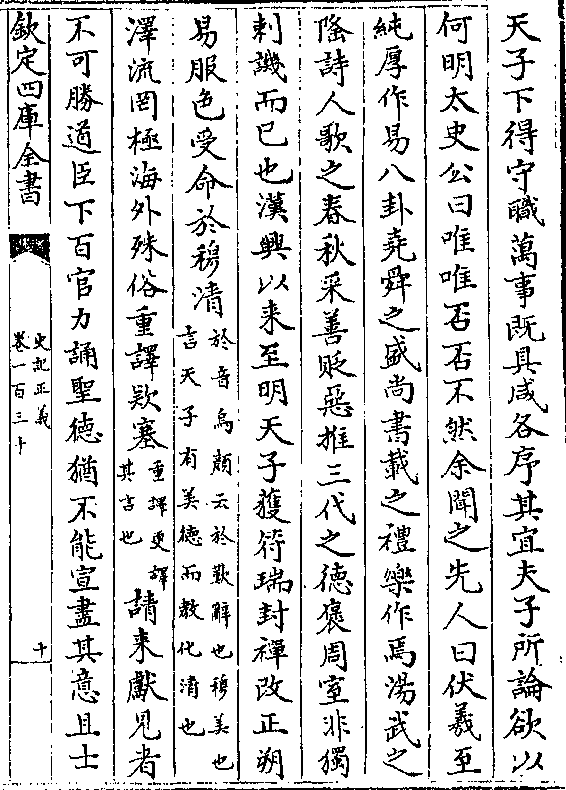 天子下得守職萬事既具咸各序其宜夫子所論欲以
何明太史公曰唯唯否否不然余聞之先人曰伏羲至
純厚作易八卦堯舜之盛尚書載之禮樂作焉湯武之
隆詩人歌之春秋采善貶惡推三代之德褒周室非獨
刺譏而已也漢興以来至明天子獲符瑞封禪改正朔
易服色受命於穆清於音烏顔云於歎辭也穆美也
言天子有美德而教化清也
澤流罔極海外殊俗重譯欵塞重譯更譯
其言也
請来獻見者
不可勝道臣下百官力誦聖德猶不能宣盡其意且士
欽定四庫全書
史記正義
卷一百三十
十